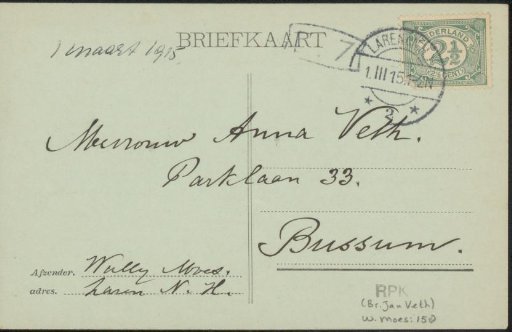 1 maart 1915
BRIEFKAART
7
LAREN
1.III.15.1-2N
2
NEDERLAND
2½
CENT
Mevrouw Anna Veth.
Parklaan 33.
Bussum.
Afzender. Wally Moes.
adres. Laren N. H.
RPK
(Br. Jan Veth)
W. Moes: 150